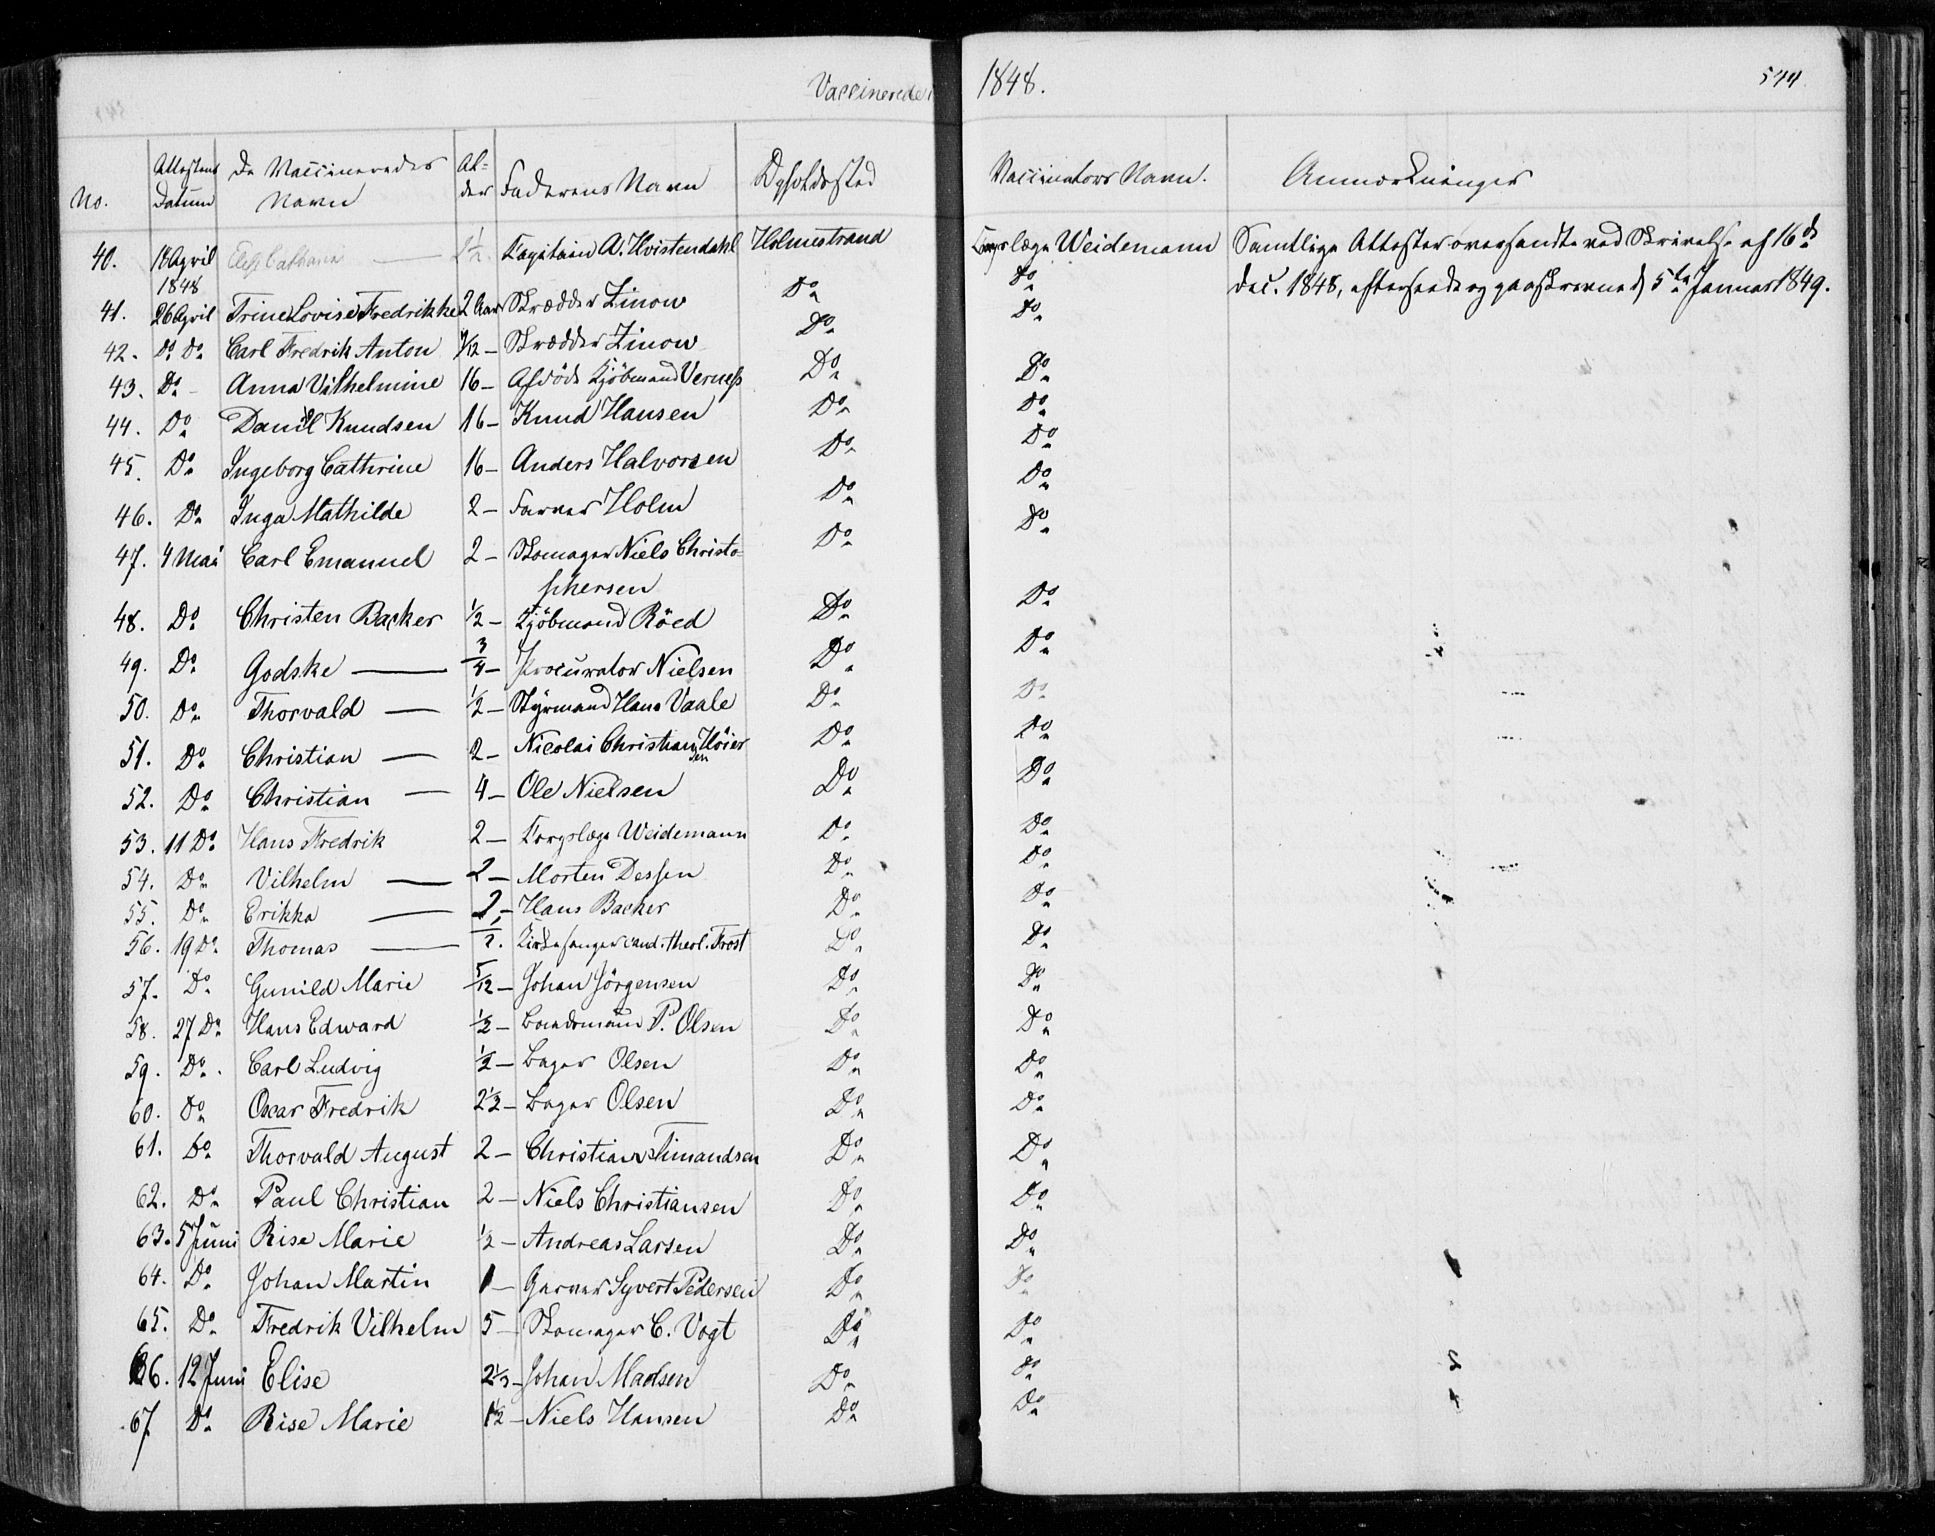 Vaccinerede 1848. 544
No. Attestens Datum De Vaccineredes Navn Alder Faderens Navn Opholdssted Vaccinators Navn. Anmærkninger
40. 18 April 1848 Capitain A. Hvistendahl Holmestrand Corpslæge Weidemann Samtlige Attester oversendte ved Skrivelse af 16de
41. 26 April Trine Lovise Fredrikke 2 Aar Skrædder Zinow Do Do Dec. 1848, efterseede og paaskrevne d 5te Januar 1849.
42. Do Do Carl Fredrik Anton /12 – Skrædder Zinow Do Do
43. Do – Anna Vilhelmine 16 – Afdöde Kjöbmand Do Do
44. Do Daniel Knudsen 16 – Knud Hansen Do Do
45. Do Ingeborg Cathrine 16 – Anders Halvorsen Do Do
46. Do Inga Mathilde 2 – Farver Holm Do Do
47. 4 Mai Carl Emanuel 2 – Skomager Niels Christo- Do Do
phersen
48. Do Christen Backer 1/2 – Kjöbmand Röed Do Do
49. Do Godske — 3/4 – Procurator Nielsen Do Do
50. Do Thorvald — 1/2 – Styrmand Hans Vaale Do Do
51. Do Christian — 2 – Nicolai Christiansen Höier Do Do
52. Do Christian — 4 – Ole Nielsen Do Do
53. 11 Do Hans Fredrik 2 – Corpslæge Weidemann Do Do
54. Do Vilhelm — 2 – Morten Dessen Do Do
55. Do Erikka — 2 – Hans Backer Do Do
56. 19 Do Thomas — 1/2. Kirkesanger cand. theol. Frost Do Do
57. Do Gunild Marie 5/12 – Johan Jörgensen Do Do
58. 27 Do Hans Edward 1/2 – P. Olsen Do Do
59. Do. Carl Ludvig 1/2 – Bager Olsen Do Do
60. Do Oscar Fredrik 2 1/2 – Bager Olsen Do Do
61. Do Thorvald August 2 – Christian Timandsen Do Do
62. Do Paul Christian 2 – Niels Christiansen Do Do
63. 5 Juni Rise Marie 1/2 – Andreas Larsen Do Do
64. Do Johan Martin 1 – Garver Syvert Pedersen Do Do
65. Do Fredrik Vilhelm 5 – Skomager C. Vogt Do Do
66. 12 Juni Elise 2 1/3 – Johan Madsen Do Do
67 Do Rise Marie 1 1/2 – Niels Hansen Do Do